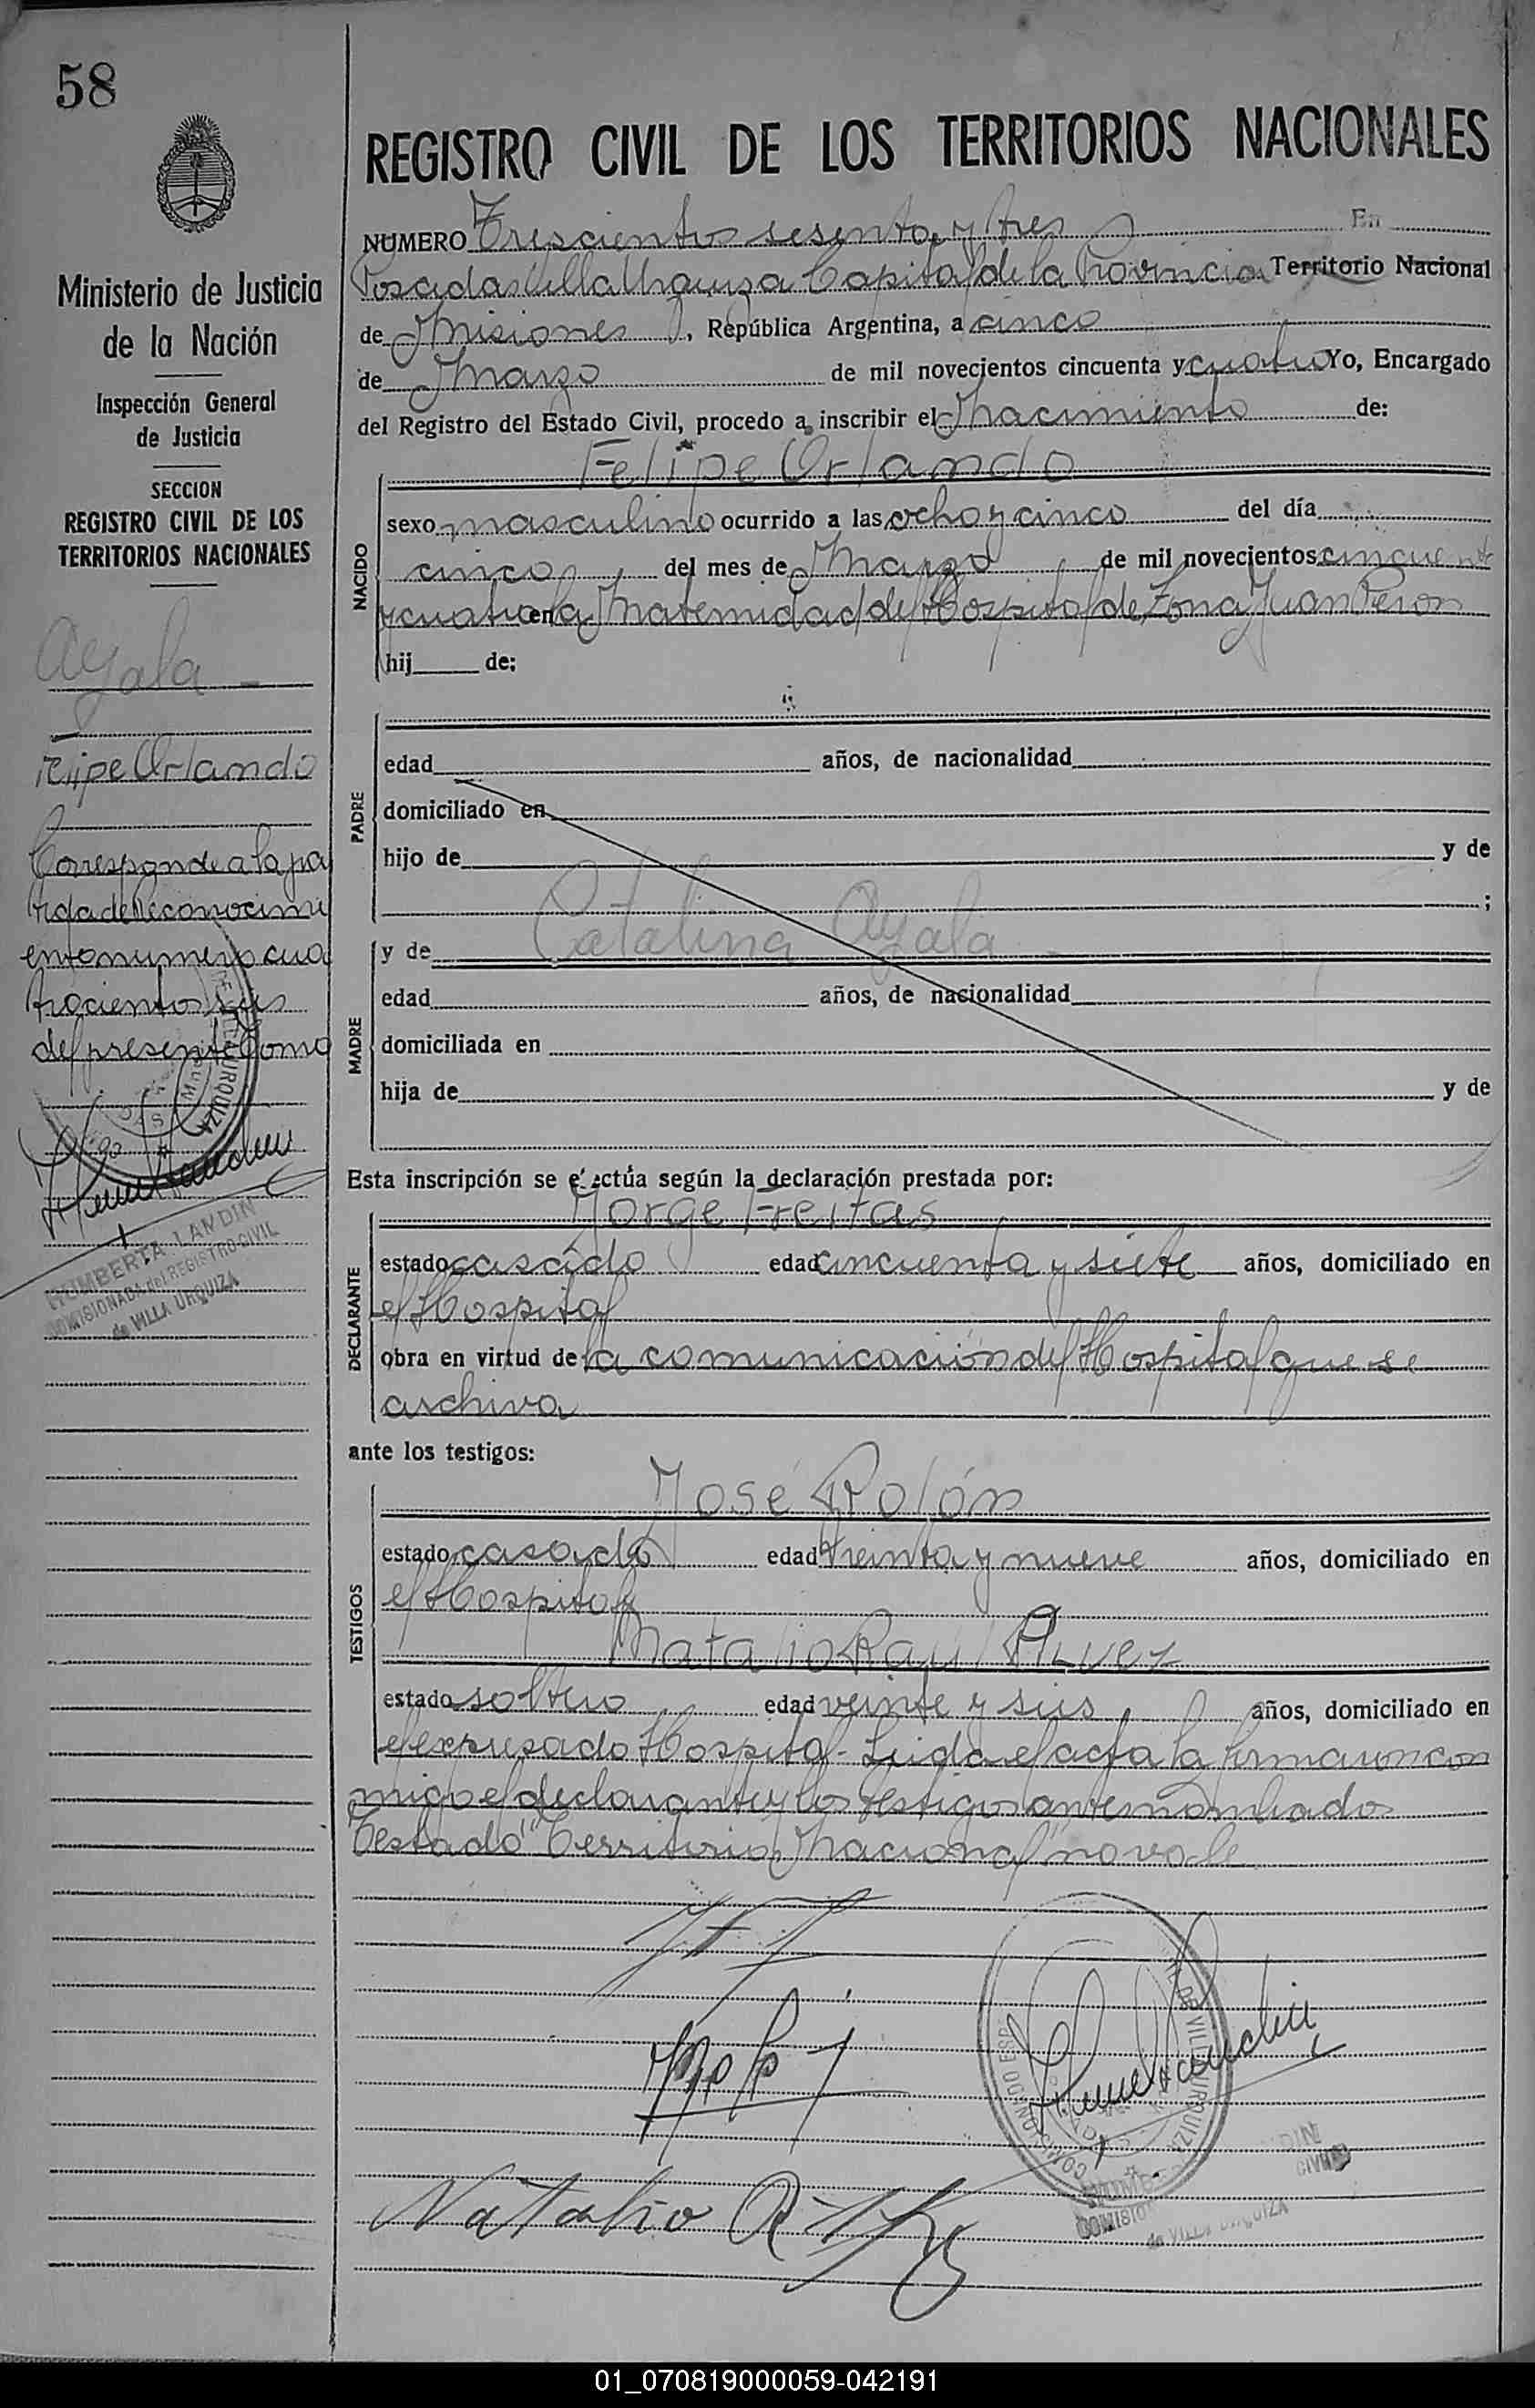 58
Ministerio de Justicia
de la Nación
Inspección General
de Justicia
SECCION
REGISTRO CIVIL DE LOS
TERRITORIOS NACIONALES
Ayala
Felipe Orlando
Corresponde a la par
tida de Reconocimi
ento numero cua
trocientos seis
del presente Tomo
HUMBERTA LANDIN
COMISIONADA del REGISTRO CIVIL
de VILLA URQUIZA
REGISTRO CIVIL DE LOS TERRITORIOS NACIONALES
NUMERO Trescientos sesenta y tres En
Posadas Villa Urquiza Capital de la Provincia Territorio Nacional
de Misiones, República Argentina, a cinco
de Marzo de mil novecientos cincuenta y cuatro Yo, Encargado
del Registro del Estado Civil, procedo a inscribir el Nacimiento de:
Felipe Orlando
NACIDO
sexo masculino ocurrido a las ocho y cinco del día
cinco del mes de Marzo de mil novecientos cincuenta
y cuatro en la Maternidad del Hospital de Zona Juan Peron
hij de:
PADRE
edad años, de nacionalidad
domiciliado en
hijo de y de
;
y de Catalina Ayala
MADRE
edad años, de nacionalidad
domiciliada en
hija de y de
Esta inscripción se efectúa según la declaración prestada por:
Jorge Freitas
DECLARANTE
estado casado edad cincuenta y siete años, domiciliado en
el Hospital
obra en virtud de la comunicación del Hospital que se
archiva
ante los testigos:
José Rolón
TESTIGOS
estado casado edad treinta y nueve años, domiciliado en
el Hospital y
Natalio Raul
estado soltero edad veinte y seis años, domiciliado en
el expresado Hospital - Leida el acta la firmaron con
migo el declarante y los testigos antes nombrados
Testado "Territorio Nacional" no vale
Natalio R
de VILLA URQUIZA
01_070819000059-042191